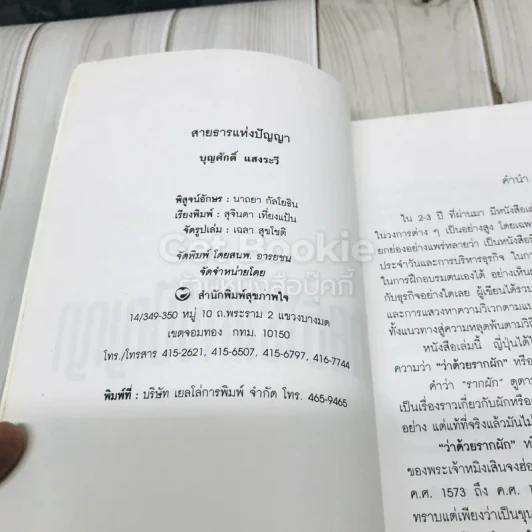 สายธารแห่งปัญญา
บุญศักดิ์ แสงระวี
พิสูจน์อักษร : นาถยา กัลโยธิน
เรียงพิมพ์ : สุจินดา เที่ยงแป้น
จัดรูปเล่ม : เฉลา สุขโชติ
จัดพิมพ์ โดยสนพ. อารยชน
จัดจำหน่ายโดย
สำนักพิมพ์สุขภาพใจ
14/349-350 หมู่ 10 ถ.พระราม 2 แขวงบางมด
เขตจอมทอง กทม. 10150
โทร./โทรสาร 415-2621, 415-6507, 415-6797, 416-7744
พิมพ์ที่ : บริษัท เยลโล่การพิมพ์ จำกัด โทร. 465-9465
Get Bookie
ร้านหนังสือบุ๊คกี้
คำนำ
ใน 2-3 ปี ที่ผ่านมา มีหนังสือเล่
ในวงการต่าง ๆ เป็นอย่างสูง โดยเฉพ
ยกย่องอย่างแพร่หลายว่า เป็นหนังสือที่
ประจำวันและการบริหารธุรกิจ ในการ
ในการฝึกอบรมตนเองได้ อย่างน้
กับธุรกิจอย่างใดเลย ผู้เขียนได้รวม
และการแสวงหาความวิเวกตามแบ
ทั้งแนวทางสู่ความหลุดพ้นตามวิถี
หนังสือเล่มนี้ ญี่ปุ่นได้
ความว่า "ว่าด้วยรากผัก" หรือ
คำว่า "รากผัก" ดูตา
เป็นเรื่องราวเกี่ยวกับผักหรือ
อย่าง แต่แท้ที่จริงแล้วมันไม่
"ว่าด้วยรากผัก" ห
ของพระเจ้าหมิงเสินจงฮ่อ
ค.ศ. 1573 ถึง ค.ศ. 1
ทราบแต่เพียงว่าเป็นขุน